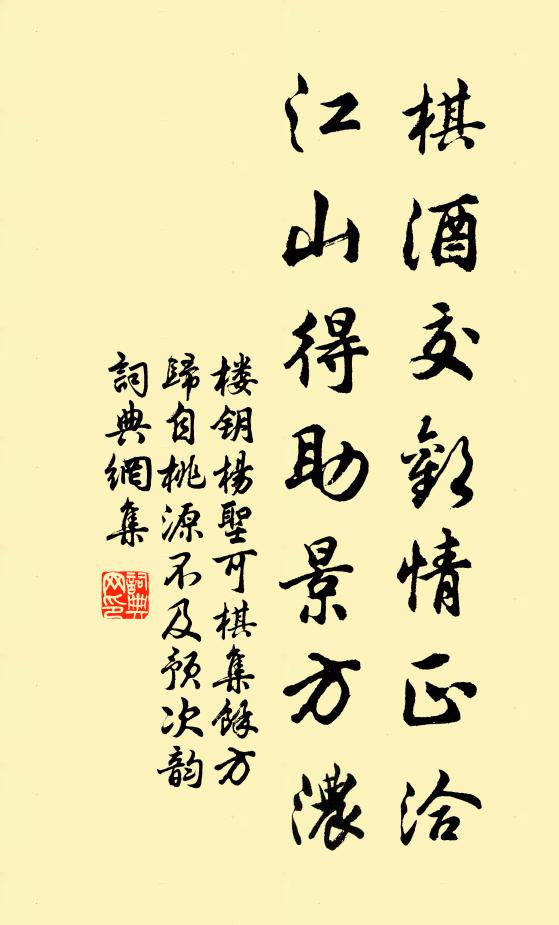 棋酒交歡情正洽
江山得助景方濃
楼钥楊聖可棋集餘方
歸自桃源不及預次韵
詞典網集
詞典網印